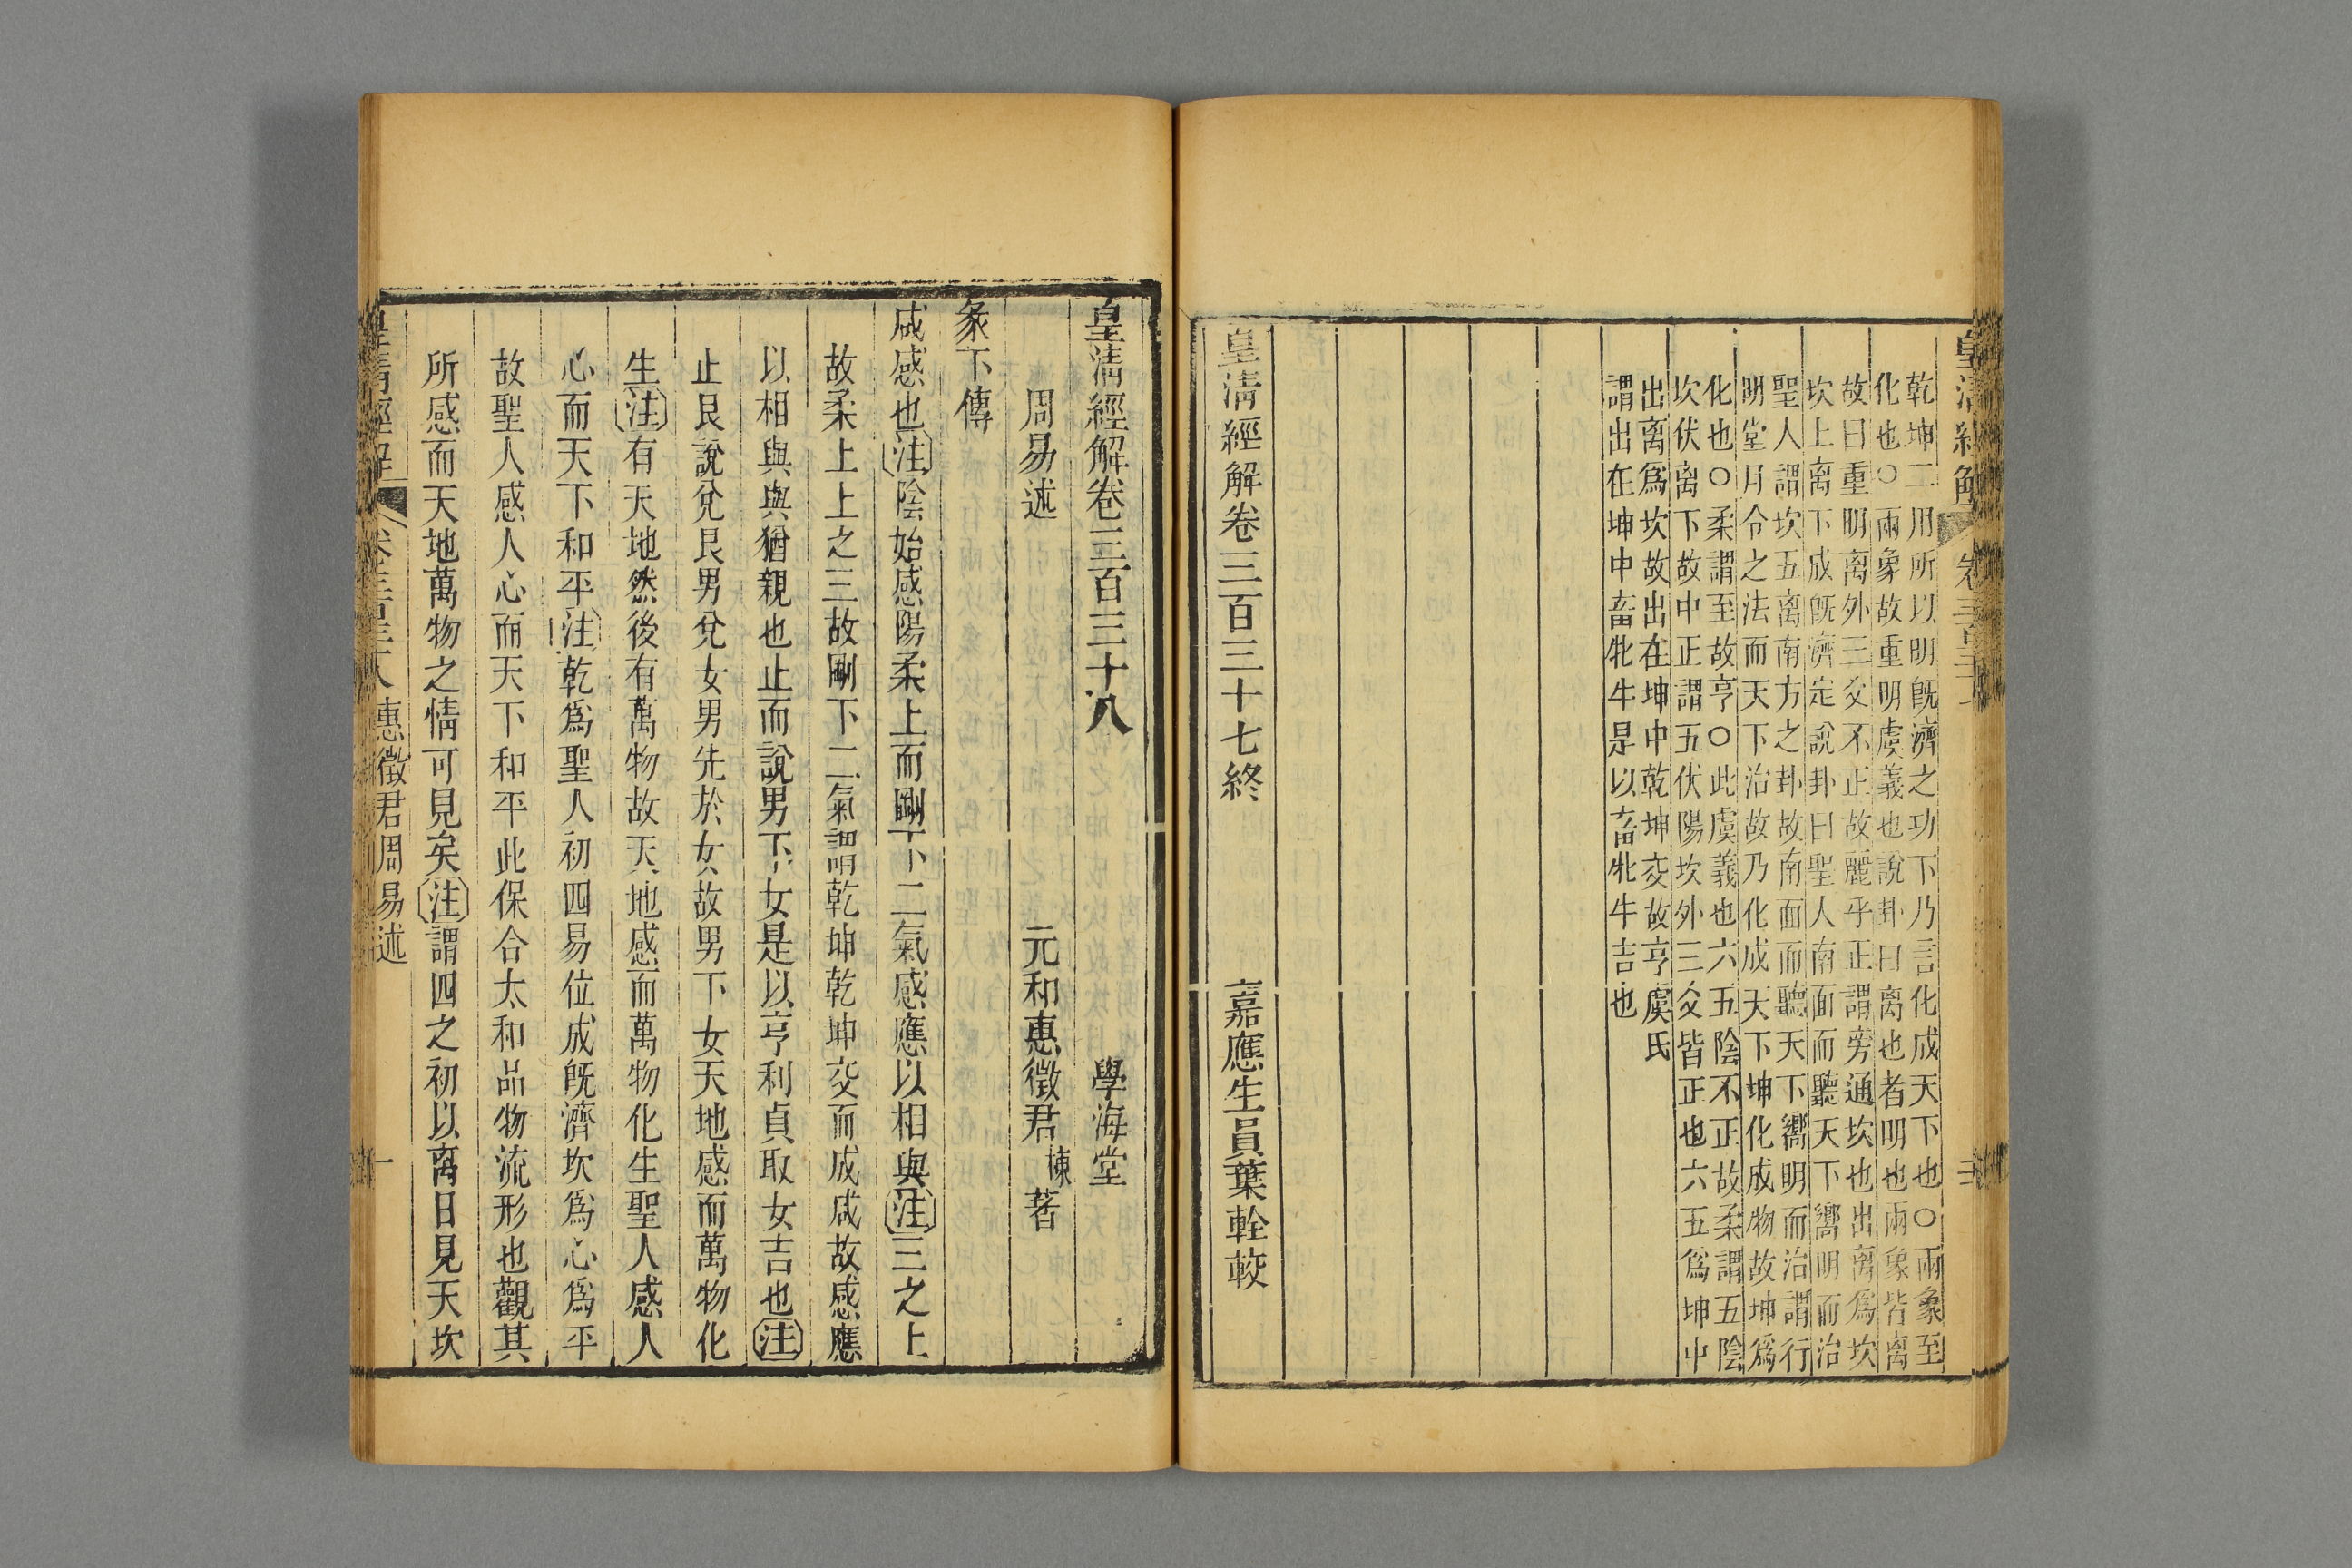 皇清經解 卷三百三十七
乾坤二用所以明旣濟之功下乃言化成天下也○兩象至
化也○兩象故重明虞義也說卦曰离也者明也兩象皆离
故曰重明离外三爻不正故麗乎正謂旁通坎也出离爲坎
坎上离下成旣濟定說卦曰聖人南面而聽天下嚮明而治
聖人謂坎五离南方之卦故南面而聽天下嚮明而治謂行
明堂月令之法而天下治故乃化成天下坤化成物故坤爲
化也○柔謂至故亨○此虞義也六五陰不正故柔謂五陰
坎伏离下故中正謂五伏陽坎外三爻皆正也六五爲坤中
出离爲坎故出在坤中乾坤交故亨虞氏
謂出在坤中畜牝牛是以畜牝牛吉也
皇清經解卷三百三十七終 嘉應生員葉輇較
皇清經解卷三百三十八 學海堂
周易述 元和惠徵君棟著
彖下傳
咸感也注陰始感陽柔上而剛下二氣感應以相與注三之上
故柔上上之三故剛下二氣謂乾坤乾坤交而成咸故感應
以相與與猶親也止而說男下女是以亨利貞取女吉也注
止艮說兌艮男兌女男先於女故男下女天地感而萬物化
生注有天地然後有萬物故天地感而萬物化生聖人感人
心而天下和平注乾爲聖人初四易位成旣濟坎爲心爲平
故聖人感人心而天下和平此保合太和品物流形也觀其
所感而天地萬物之情可見矣注謂四之初以离日見天坎
皇清經解 卷三百三十八 惠徵君周易述 一